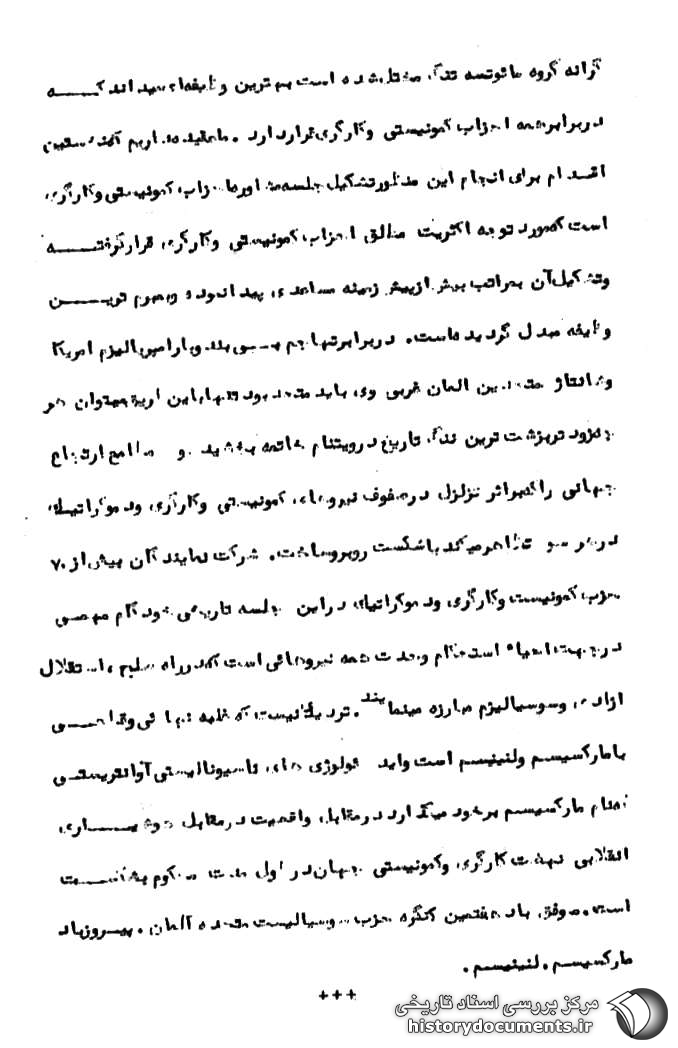 گرانه گروه مائوتسه تنگ، مختل شده است مهم ترین وظیفه‌ای میداند کــــه
در برابر همه احزاب کمونیستی و کارگری قرار دارد . ما عقیده داریم که نخستین
اقدام برای انجام این منظور تشکیل جلسه مشاوره احزاب کمونیستی و کارگری،
است که مورد توجه اکثریت مطلق احزاب کمونیستی و کارگری قرار گرفتــــه
و تشکیل آن بمراتب بیش از پیش زمینه مساعدی، پیدا نموده و بمهم تریــــن
وظیفه مبدل گردیده است. در برابر تهاجم امپریالیزم امریکا
و متحدین المان غربی وی، باید متحد بود تنها باین می توان هر
چه زودتر بزشت ترین تاریخ در ویتنام خاتمه بخشید و مطامع ارتجاع
جهانی را که براثر تزلزل در صفوف نیروهای، کمونیستی و کارگری، و دموکراتیک،
در هر سو تظاهر میکند با شکست روبرو ساخت. شرکت نمایندگان بیش از ۷۰
حزب کمونیست و کارگری و دموکراتیک در این جلسه تاریخی خود گام مهمی
در جهت احیاء استحکام وحدت همه نیروهائی است که در راه صلح، استقلال
ازادی، و سوسیالیزم مبارزه مینمایند. تردیدی نیست که غلبه نهائی و قطعــــی
با مارکسیسم ولنینیسم است و اید ئولوژی های، ناسیونالیستی آوانتوریستــی
نام مارکسیسم برخود میگذارد در مقابل واقعیت در مقابل هوشیــــاری،
انقلابی نهضت کارگری، و کمونیستی جهان در طول مدت محکوم بشکســــت
است. موفق باد هفتمین کنگره حزب سوسیالیست متحده آلمان . پیروزباد
مارکسیسم . لنینیسم .
+++
مرکز بررسی اسناد تاریخی
historydocuments.ir